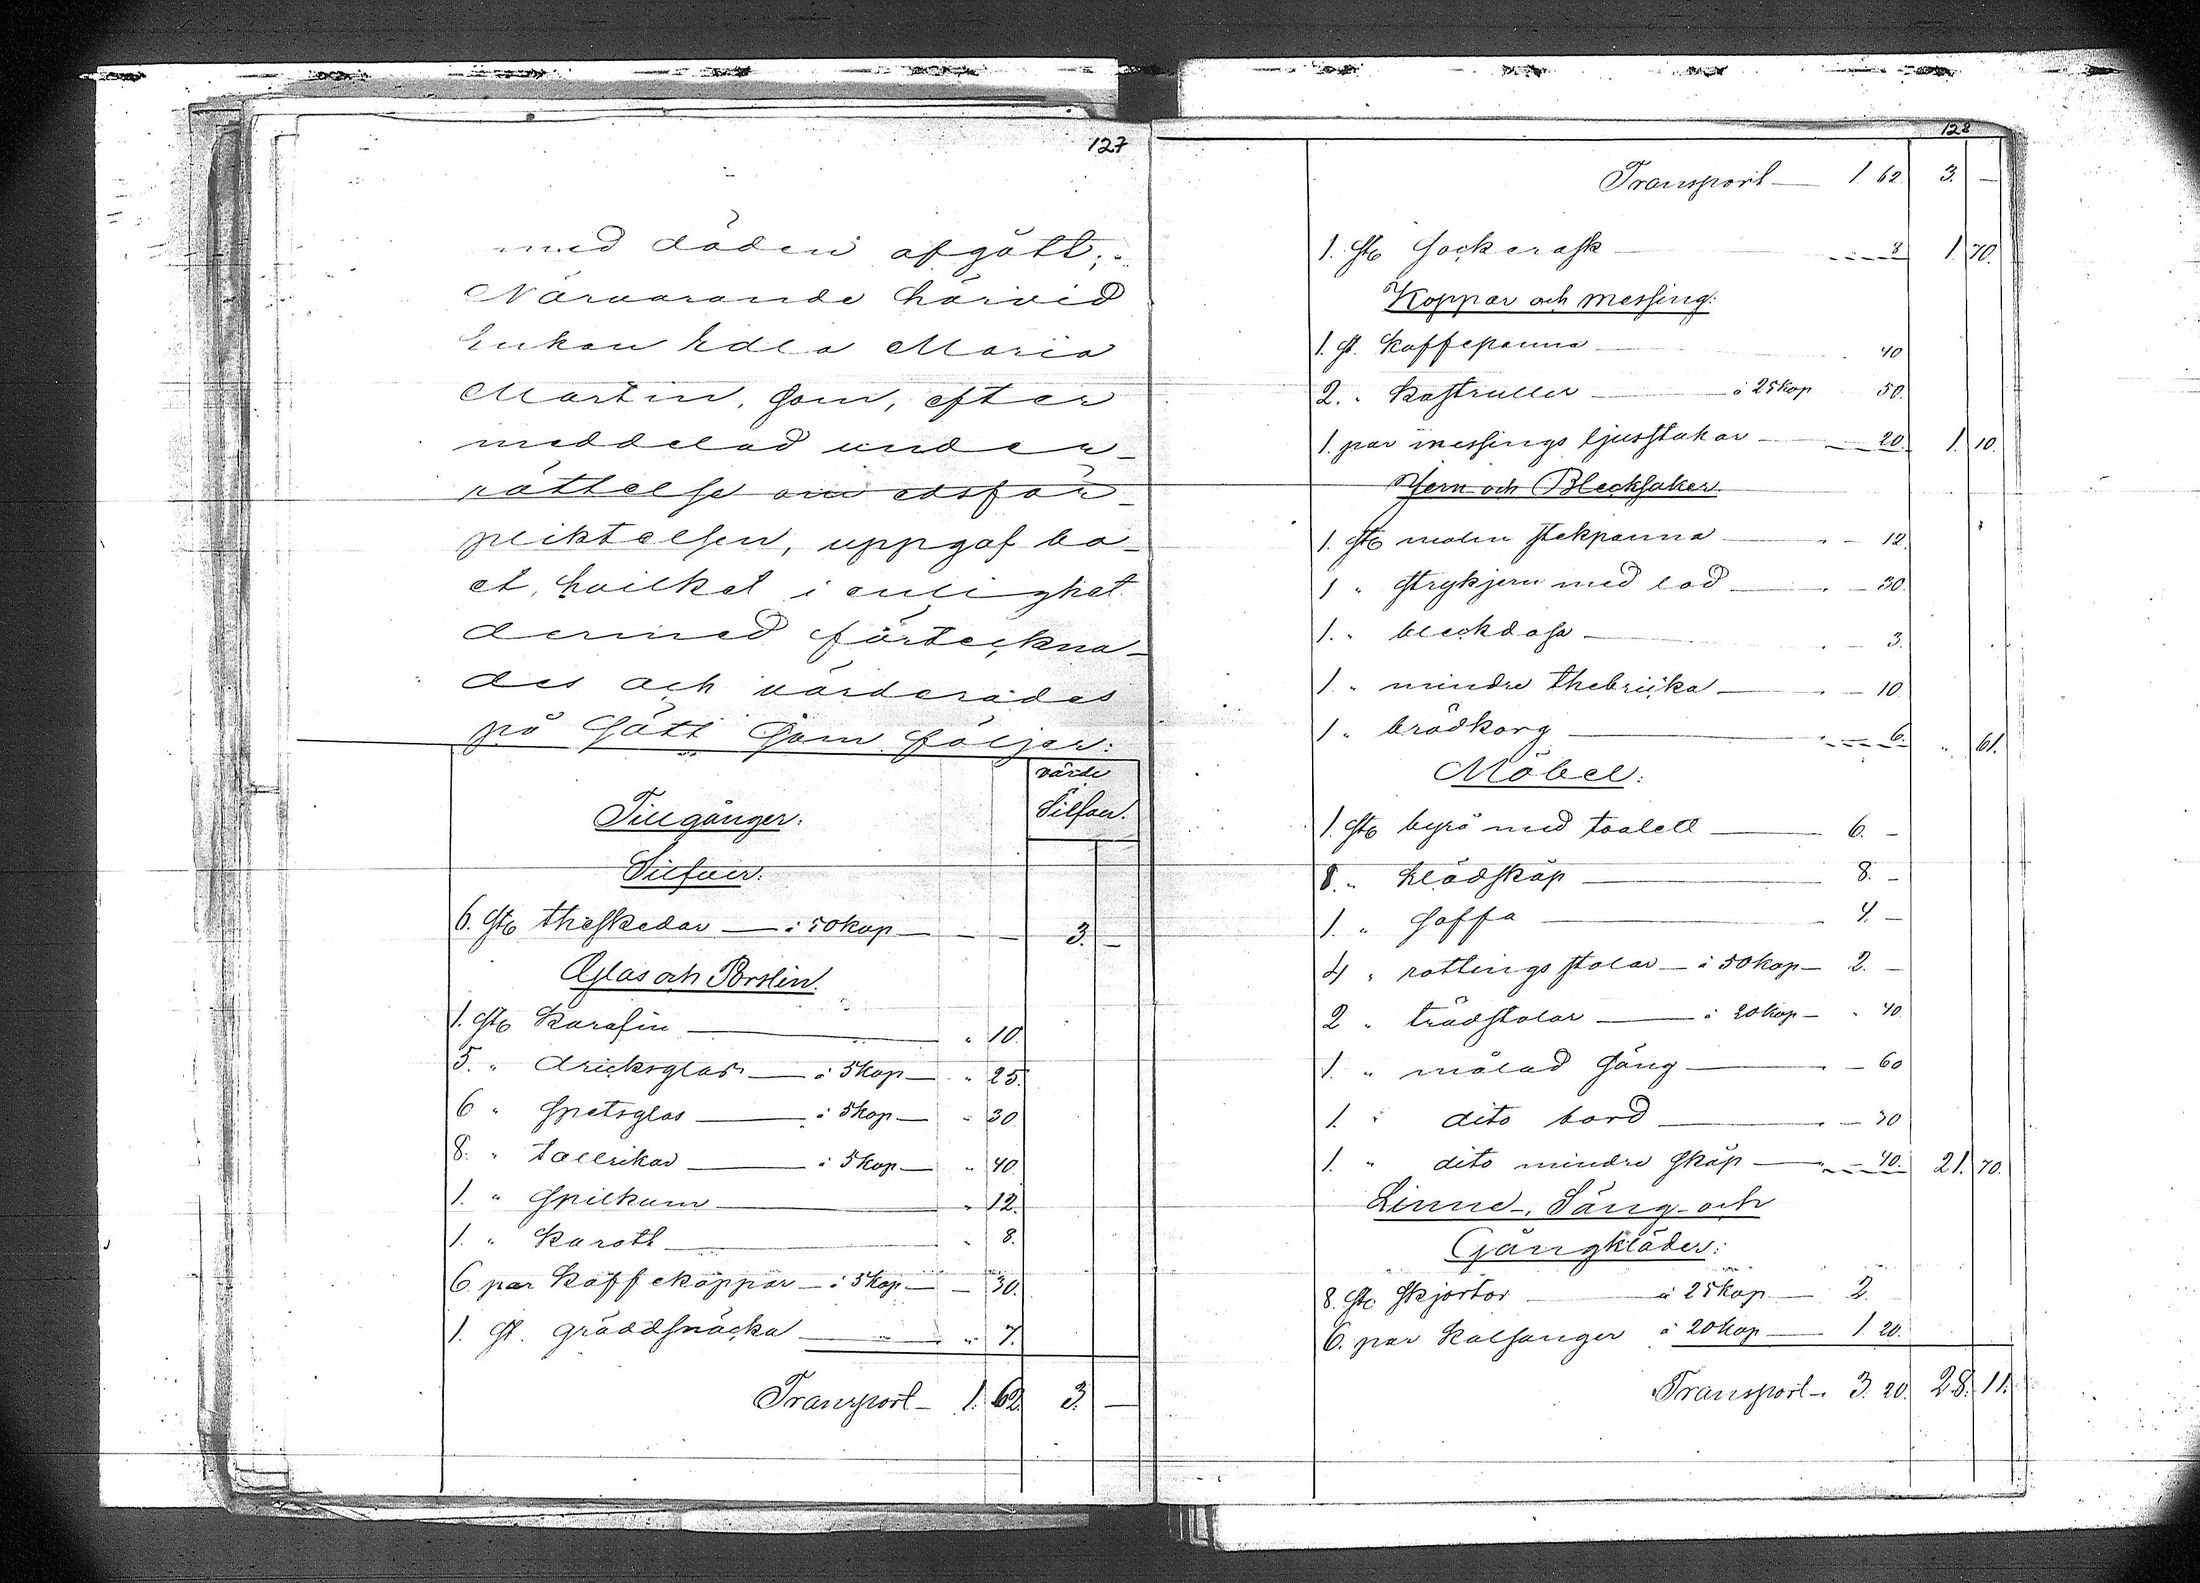 127
med döden afgått;
Närvarande härvid
Enkan Edla Maria
Martin, som, efter
meddelad under-
rättelse om edsför-
pliktelsen, uppgaf bo-
et, hvilket i enlighet
dermed förteckna-
des och värderades
på sätt som följer:
värde
Silfver.
Tillgånger:
Silfver:
6. stc theskedar — à 50 kop — — — 3. —
Glas och Porslin.
1. stc Karafin — " 10.
5. " dricksglas — à 5 kop — " 25.
6 " spetsglas — à 5 kop — " 30.
8. " tallrikar — à 5 kop — " 40.
1. " spilkum — " 12.
1. " Karott — " 8.
6 par Kaffekoppar — à 5 kop — — 30.
1. st. gräddsnäcka — " 7.
Transport — 1. 62. 3. —
128
Transport — 1. 62. 3. —
1. stc sockerask — 8 1. 70.
Koppar och messing:
1. st. Kaffepanna — 40
2. " Kastruller — à 25 kop 50.
1. par messings ljusstakar — 20. 1. 10.
Jern och Blecksaker.
1. stc malm stekpanna — 12.
1 " strykjern med lod — 30.
1. " bleckdosa — 3.
1. " mindre thebricka — 10
1 " brödkorg — 6. " 61.
Möbel:
1. stc byrå med toalett — 6. —
1. " klädskåp — 8. —
1. " soffa — 4. —
4 " rottingsstolar — à 50 kop — 2. —
2 " trädstolar — à 20 kop — " 40
1. " målad säng — 60
1. " dito bord — 30
1. " dito mindre skåp — 40. 21. 70.
Linne-, Säng- och
Gångkläder:
8. stc skjortor — à 25 kop — 2.
6. par Kalsonger à 20 kop — 1. 20.
Transport — 3. 20. 28. 11.